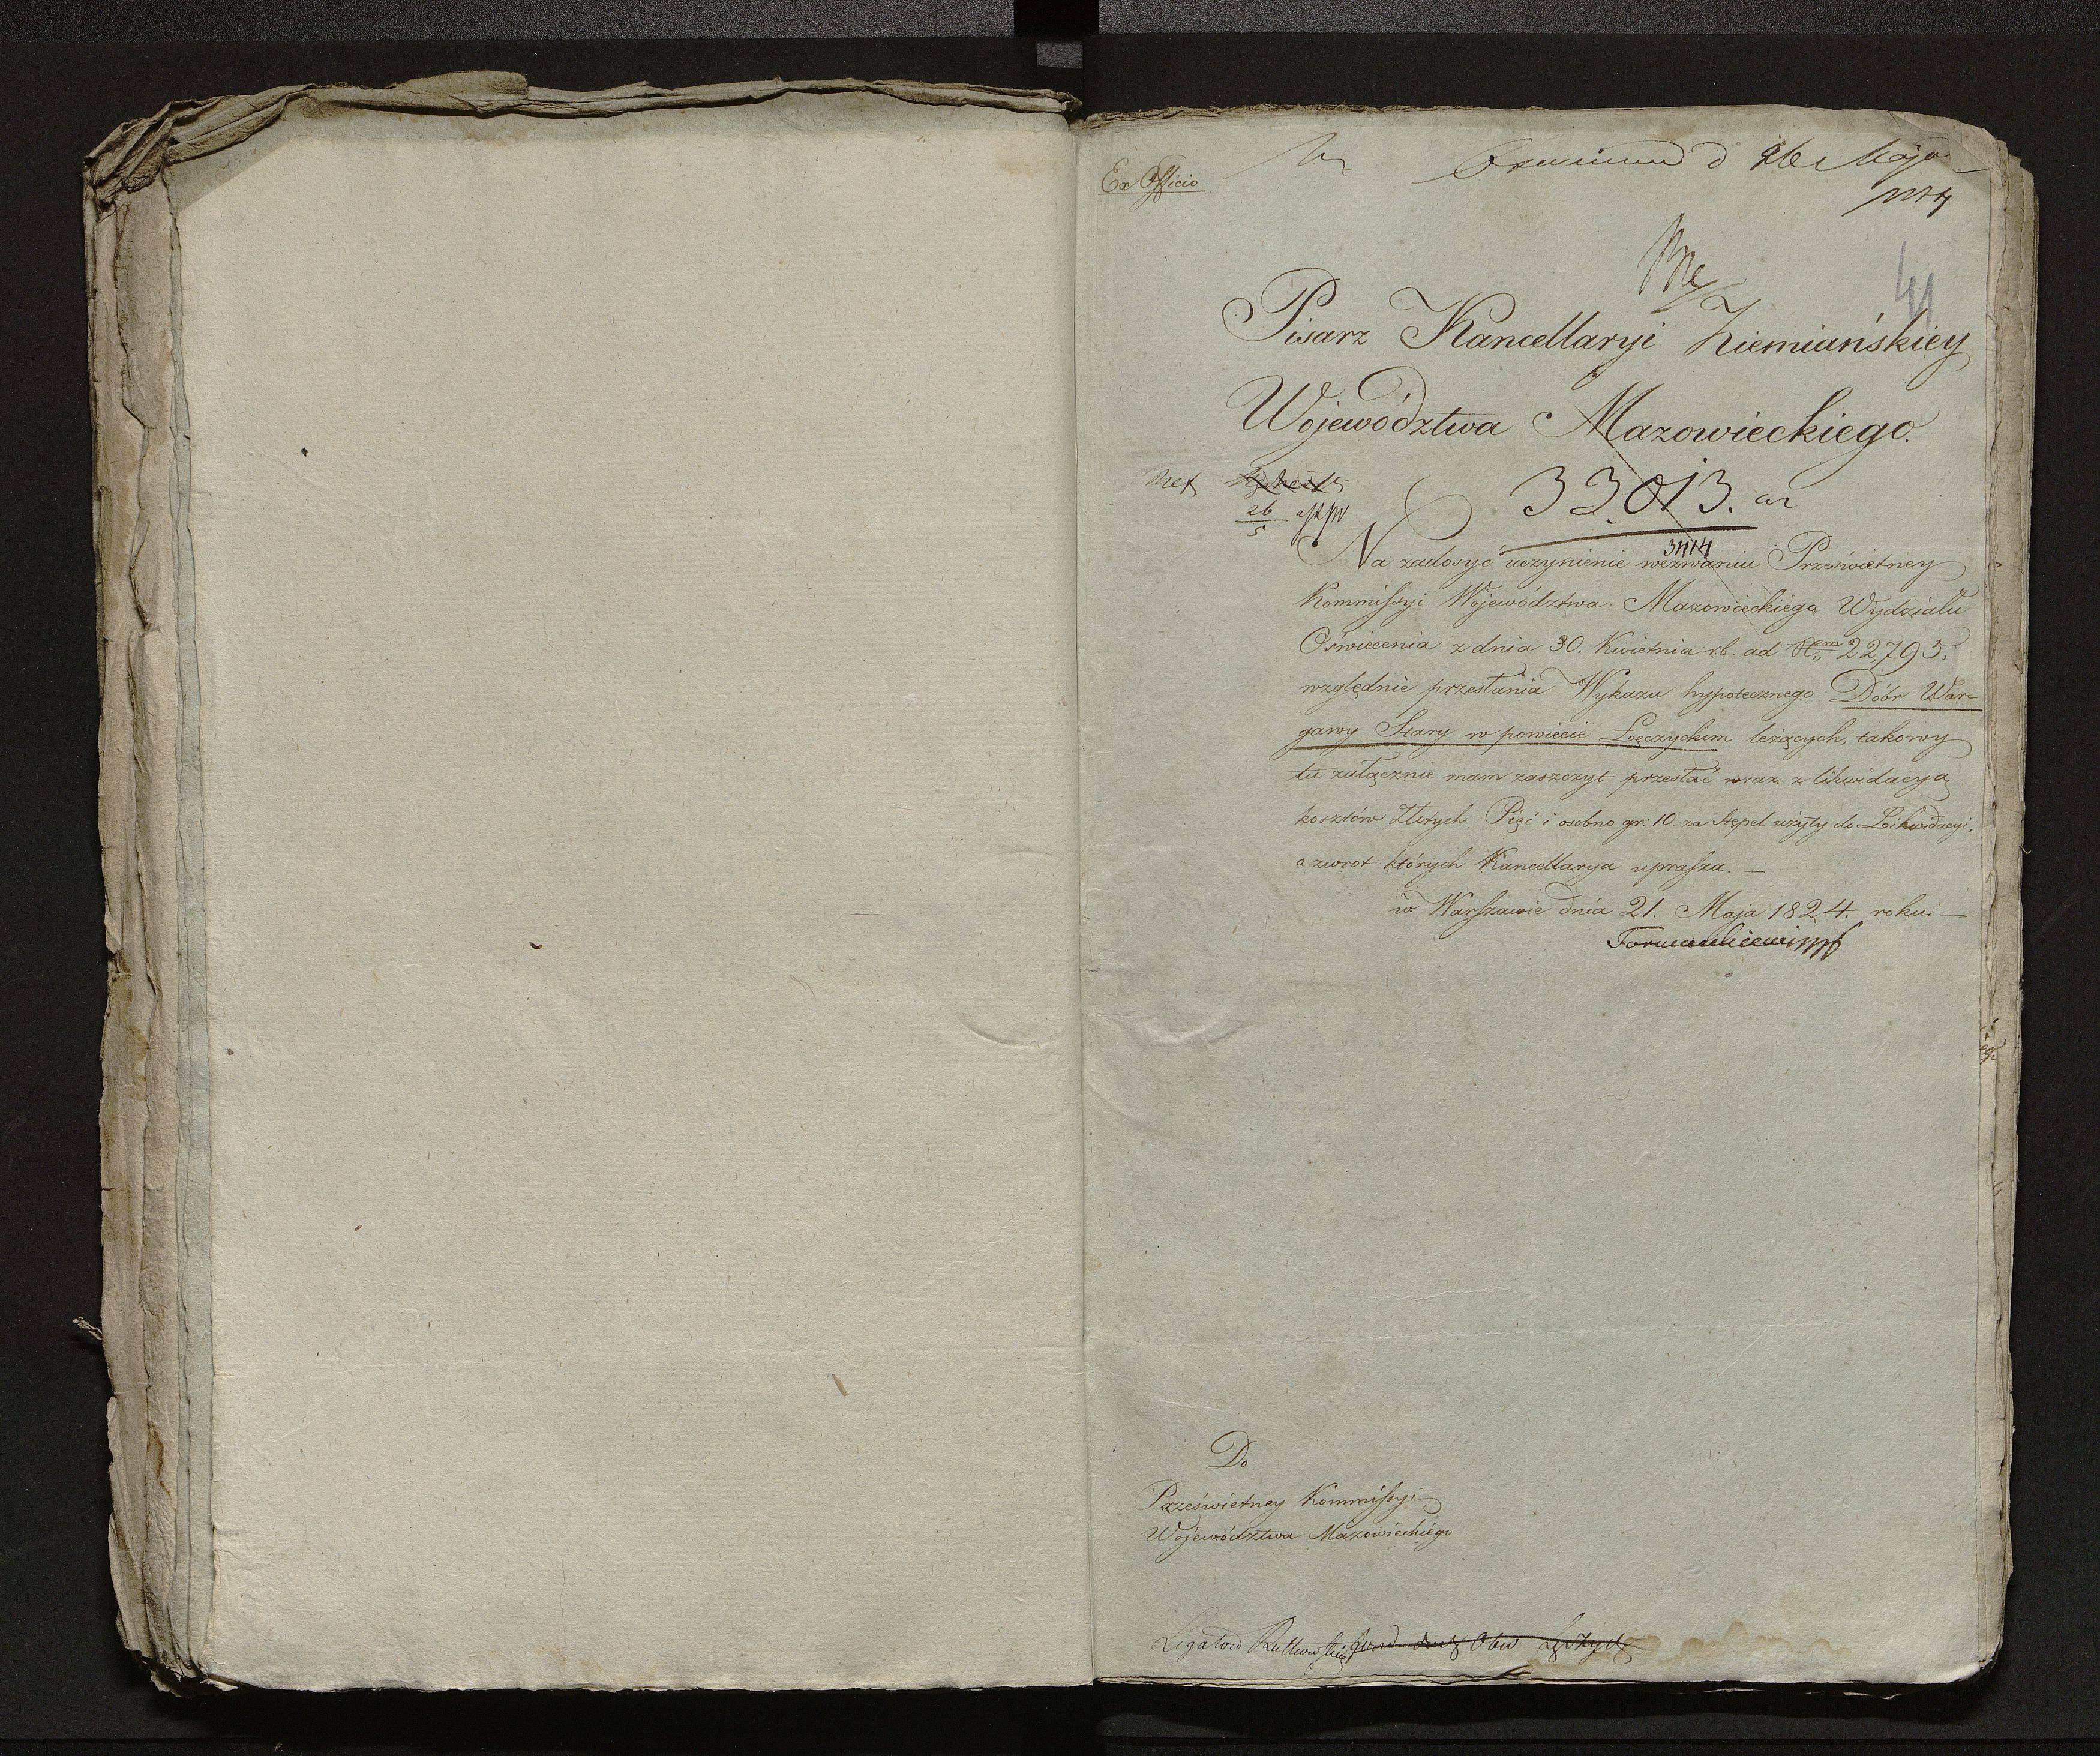 Ex Officio
d 26 Maja
41
Pisarz Kancellaryi Ziemiańskiey
Województwa Mazowieckiego.
33,013.
26
5
Na zadosyć uczynienie wezwaniu Prześwietney
Kommissyi Województwa Mazowieckiego Wydziału
Oświecenia z dnia 30. Kwietnia r.b. ad Nem 22,793.
względnie przesłania Wykazu hypotecznego Dóbr War-
gawy Stary w powiecie Łęczyckim leżących, takowy
tu załącznie mam zaszczyt przesłać wraz z likwidacyą
kosztów Złotych Pięć i osobno gr: 10. za Stępel użyty do Likwidacyi,
o zwrot których Kancellarya uprasza. —
w Warszawie dnia 21. Maja 1824. roku —
Do
Prześwietney Kommissyi
Województwa Mazowieckiego